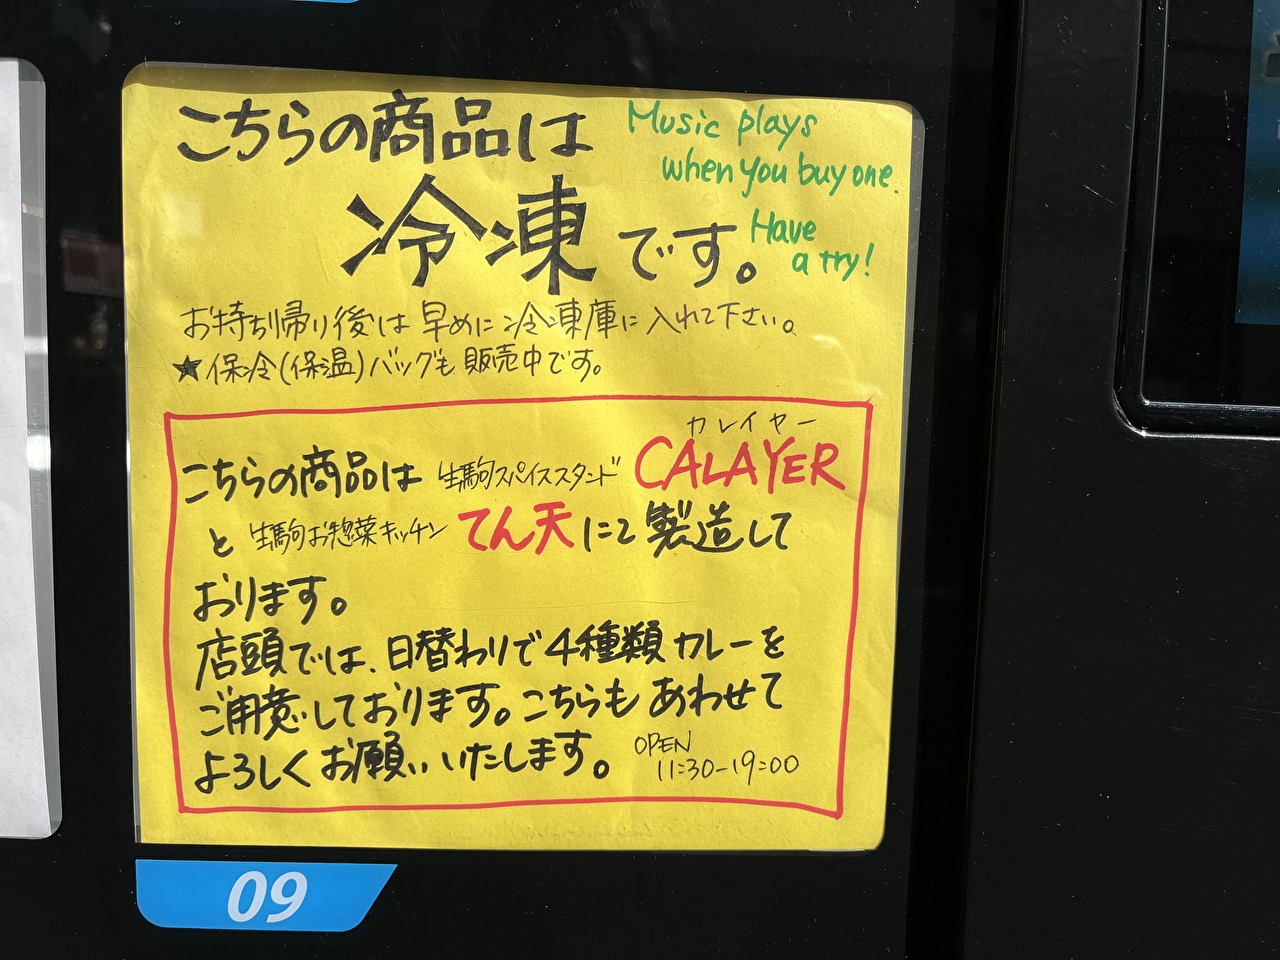 こちらの商品は
冷凍です。
Music plays
when you buy one.
Have
a try!
お持ち帰り後は早めに冷凍庫に入れて下さい。
★保冷(保温)バッグも販売中です。
カレイヤー
こちらの商品は 生駒スパイススタンド CALAYER
と 生駒お惣菜キッチン てん天にて製造して
おります。
店頭では、日替わりで4種類カレーを
ご用意しております。こちらもあわせて
よろしくお願いいたします。
OPEN
11:30-19:00
09